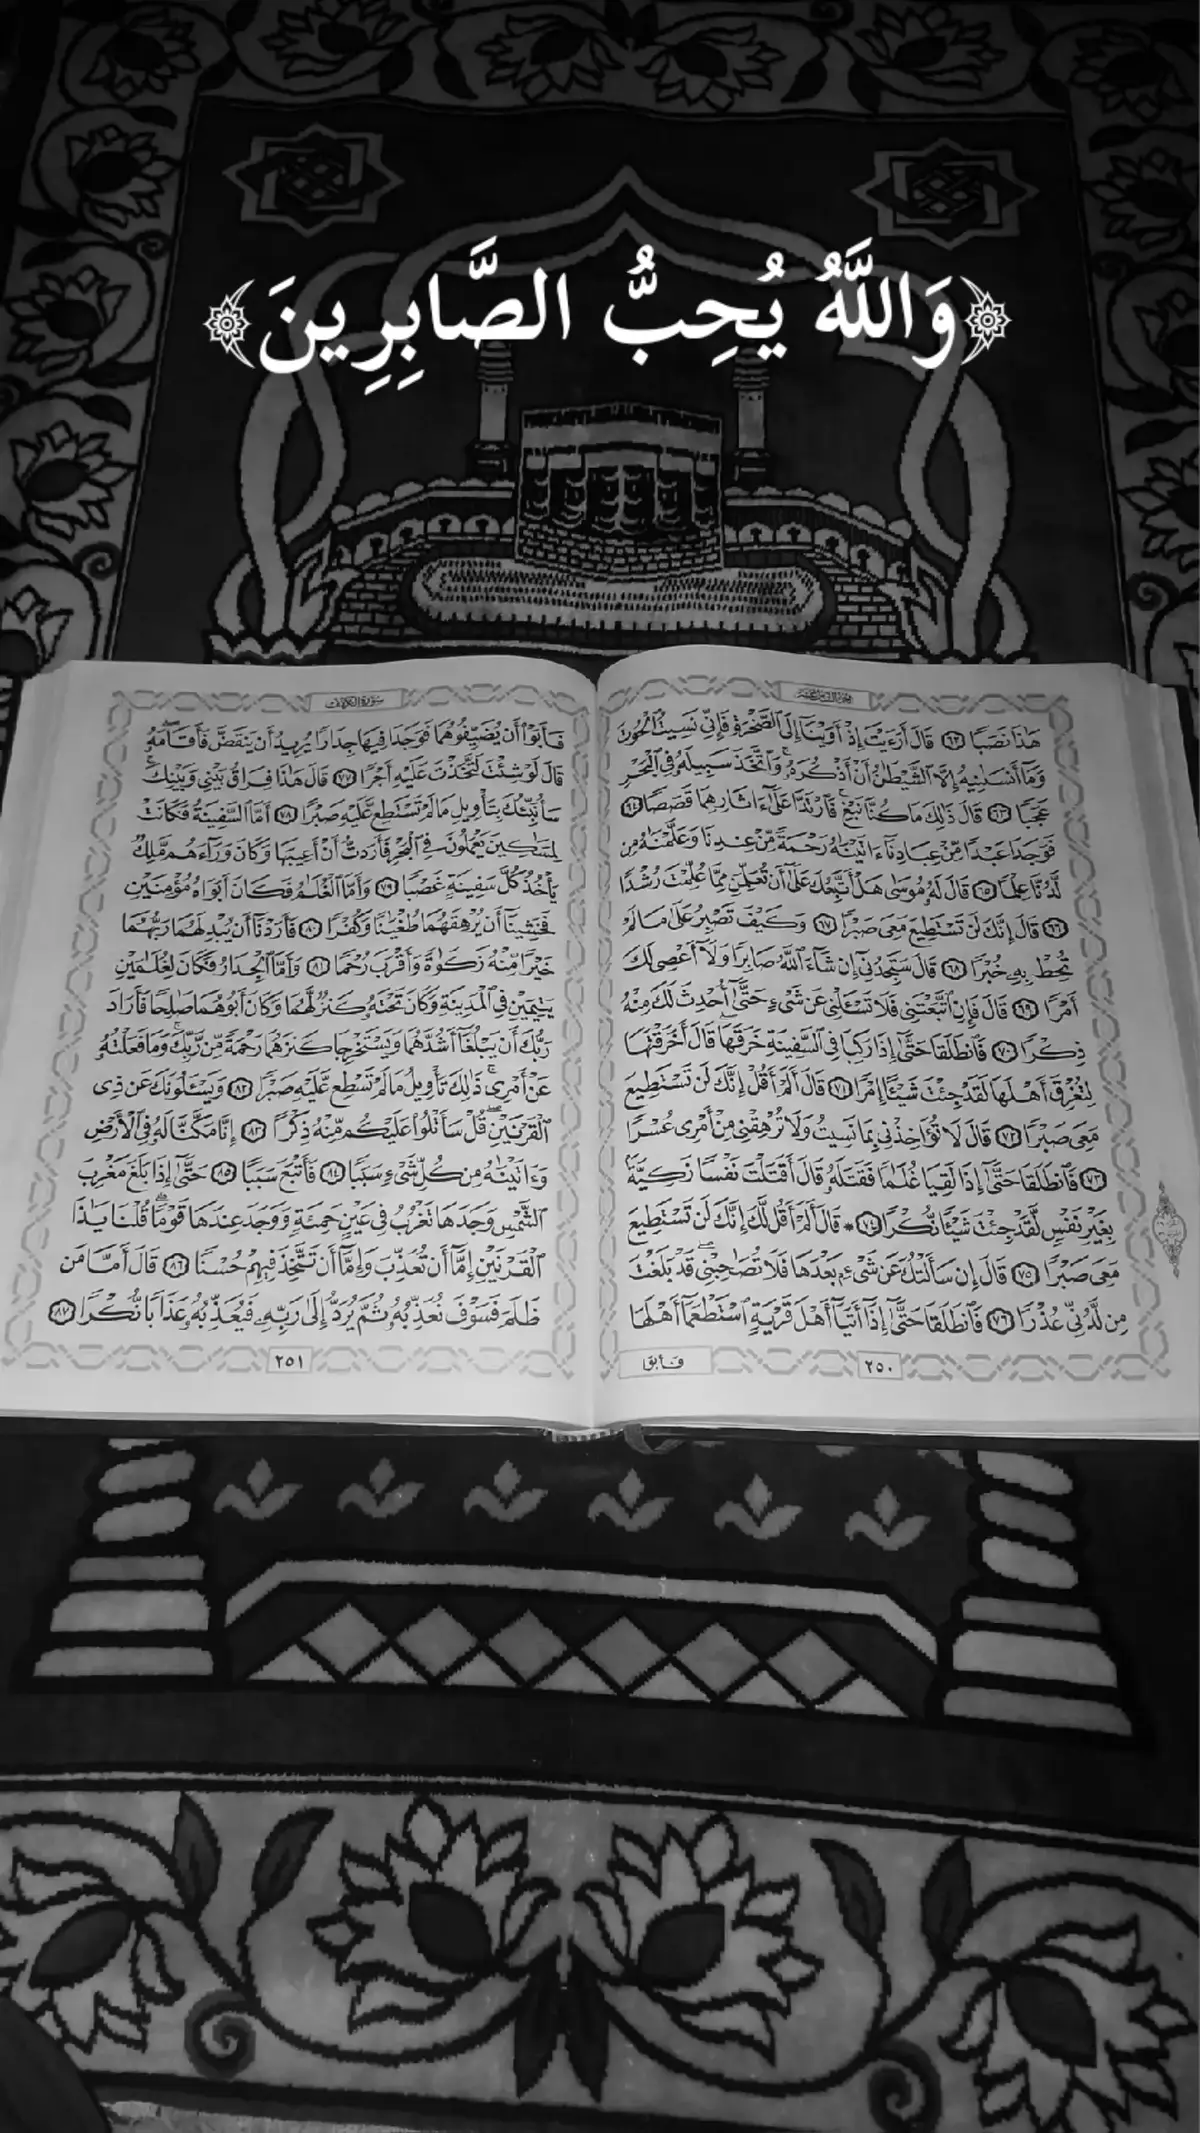 ﴿وَاللَّهُ يُحِبُّ الصَّابِرِينَ﴾
هَٰذَا نَصَبًا ٦٢ قَالَ أَرَءَيْتَ إِذْ أَوَيْنَآ إِلَى ٱلصَّخْرَةِ فَإِنِّي نَسِيتُ ٱلْحُوتَ
وَمَآ أَنسَىٰنِيهُ إِلَّا ٱلشَّيْطَٰنُ أَنْ أَذْكُرَهُۥ ۚ وَٱتَّخَذَ سَبِيلَهُۥ فِي ٱلْبَحْرِ
عَجَبًا ٦٣ قَالَ ذَٰلِكَ مَا كُنَّا نَبْغِ ۚ فَٱرْتَدَّا عَلَىٰٓ ءَاثَارِهِمَا قَصَصًا ٦٤
فَوَجَدَا عَبْدًا مِّنْ عِبَادِنَآ ءَاتَيْنَٰهُ رَحْمَةً مِّنْ عِندِنَا وَعَلَّمْنَٰهُ مِن
لَّدُنَّا عِلْمًا ٦٥ قَالَ لَهُۥ مُوسَىٰ هَلْ أَتَّبِعُكَ عَلَىٰٓ أَن تُعَلِّمَنِ مِمَّا عُلِّمْتَ رُشْدًا
٦٦ قَالَ إِنَّكَ لَن تَسْتَطِيعَ مَعِيَ صَبْرًا ٦٧ وَكَيْفَ تَصْبِرُ عَلَىٰ مَا لَمْ
تُحِطْ بِهِۦ خُبْرًا ٦٨ قَالَ سَتَجِدُنِيٓ إِن شَآءَ ٱللَّهُ صَابِرًا وَلَآ أَعْصِي لَكَ
أَمْرًا ٦٩ قَالَ فَإِنِ ٱتَّبَعْتَنِي فَلَا تَسْـَٔلْنِي عَن شَيْءٍ حَتَّىٰٓ أُحْدِثَ لَكَ مِنْهُ
ذِكْرًا ٧٠ فَٱنطَلَقَا حَتَّىٰٓ إِذَا رَكِبَا فِي ٱلسَّفِينَةِ خَرَقَهَا ۖ قَالَ أَخَرَقْتَهَا
لِتُغْرِقَ أَهْلَهَا لَقَدْ جِئْتَ شَيْـًٔا إِمْرًا ٧١ قَالَ أَلَمْ أَقُلْ إِنَّكَ لَن تَسْتَطِيعَ
مَعِيَ صَبْرًا ٧٢ قَالَ لَا تُؤَاخِذْنِي بِمَا نَسِيتُ وَلَا تُرْهِقْنِي مِنْ أَمْرِي عُسْرًا
٧٣ فَٱنطَلَقَا حَتَّىٰٓ إِذَا لَقِيَا غُلَٰمًا فَقَتَلَهُۥ قَالَ أَقَتَلْتَ نَفْسًا زَكِيَّةً
بِغَيْرِ نَفْسٍ لَّقَدْ جِئْتَ شَيْـًٔا نُّكْرًا ٧٤ * قَالَ أَلَمْ أَقُل لَّكَ إِنَّكَ لَن تَسْتَطِيعَ
مَعِيَ صَبْرًا ٧٥ قَالَ إِن سَأَلْتُكَ عَن شَيْءٍ بَعْدَهَا فَلَا تُصَٰحِبْنِي ۖ قَدْ بَلَغْتَ
مِن لَّدُنِّي عُذْرًا ٧٦ فَٱنطَلَقَا حَتَّىٰٓ إِذَآ أَتَيَآ أَهْلَ قَرْيَةٍ ٱسْتَطْعَمَآ أَهْلَهَا
٢٥٠
سورة الكهف
فَأَبَوْا۟ أَن يُضَيِّفُوهُمَا فَوَجَدَا فِيهَا جِدَارًا يُرِيدُ أَن يَنقَضَّ فَأَقَامَهُۥ ۖ
قَالَ لَوْ شِئْتَ لَتَّخَذْتَ عَلَيْهِ أَجْرًا ٧٧ قَالَ هَٰذَا فِرَاقُ بَيْنِي وَبَيْنِكَ ۚ
سَأُنَبِّئُكَ بِتَأْوِيلِ مَا لَمْ تَسْتَطِع عَّلَيْهِ صَبْرًا ٧٨ أَمَّا ٱلسَّفِينَةُ فَكَانَتْ
لِمَسَٰكِينَ يَعْمَلُونَ فِي ٱلْبَحْرِ فَأَرَدتُّ أَنْ أَعِيبَهَا وَكَانَ وَرَآءَهُم مَّلِكٌ
يَأْخُذُ كُلَّ سَفِينَةٍ غَصْبًا ٧٩ وَأَمَّا ٱلْغُلَٰمُ فَكَانَ أَبَوَاهُ مُؤْمِنَيْنِ
فَخَشِينَآ أَن يُرْهِقَهُمَا طُغْيَٰنًا وَكُفْرًا ٨٠ فَأَرَدْنَآ أَن يُبْدِلَهُمَا رَبُّهُمَا
خَيْرًا مِّنْهُ زَكَوٰةً وَأَقْرَبَ رُحْمًا ٨١ وَأَمَّا ٱلْجِدَارُ فَكَانَ لِغُلَٰمَيْنِ
يَتِيمَيْنِ فِي ٱلْمَدِينَةِ وَكَانَ تَحْتَهُۥ كَنزٌ لَّهُمَا وَكَانَ أَبُوهُمَا صَٰلِحًا فَأَرَادَ
رَبُّكَ أَن يَبْلُغَآ أَشُدَّهُمَا وَيَسْتَخْرِجَا كَنزَهُمَا رَحْمَةً مِّن رَّبِّكَ ۚ وَمَا فَعَلْتُهُۥ
عَنْ أَمْرِي ۚ ذَٰلِكَ تَأْوِيلُ مَا لَمْ تَسْطِع عَّلَيْهِ صَبْرًا ٨٢ وَيَسْـَٔلُونَكَ عَن ذِي
ٱلْقَرْنَيْنِ ۖ قُلْ سَأَتْلُوا۟ عَلَيْكُم مِّنْهُ ذِكْرًا ٨٣ إِنَّا مَكَّنَّا لَهُۥ فِي ٱلْأَرْضِ
وَءَاتَيْنَٰهُ مِن كُلِّ شَيْءٍ سَبَبًا ٨٤ فَأَتْبَعَ سَبَبًا ٨٥ حَتَّىٰٓ إِذَا بَلَغَ مَغْرِبَ
ٱلشَّمْسِ وَجَدَهَا تَغْرُبُ فِي عَيْنٍ حَمِئَةٍ وَوَجَدَ عِندَهَا قَوْمًا ۗ قُلْنَا يَٰذَا
ٱلْقَرْنَيْنِ إِمَّآ أَن تُعَذِّبَ وَإِمَّآ أَن تَتَّخِذَ فِيهِمْ حُسْنًا ٨٦ قَالَ أَمَّا مَن
ظَلَمَ فَسَوْفَ نُعَذِّبُهُۥ ثُمَّ يُرَدُّ إِلَىٰ رَبِّهِۦ فَيُعَذِّبُهُۥ عَذَابًا نُّكْرًا ٨٧
٢٥١